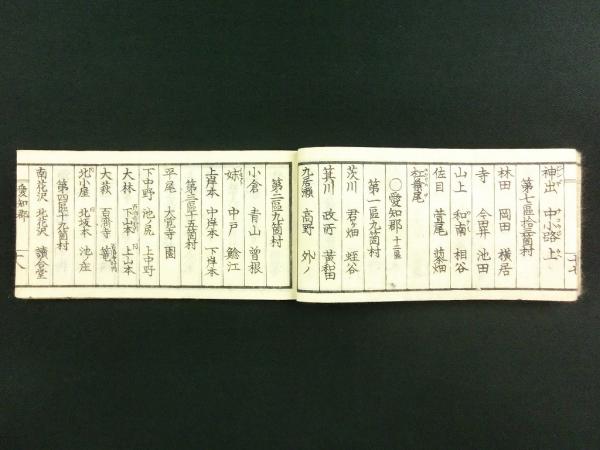 神出 中小路 上
第七區拾三箇村
林田 岡田 横居
寺 今田居 池田
山上 和南 相谷
佐目 萱尾
杜葉尾
〇愛知郡 十二區
第一區九箇村
茨川 君ヶ畑 蛭谷
箕川 政所 黄和田
九居瀬 高野 外ノ
第二區九箇村
小倉 青山 曽根
妹 中戸 鯰江
上岸本 中岸本 下岸本
第三區十五箇村
平尾 大覚寺 園
下中野 池ノ尻 上中野
大林 下山本 上山本
大萩 百濟寺
北小屋 北坂本 池ノ庄
第四區十九箇村
南花沢 北花沢 讀合堂
愛知郡 十八